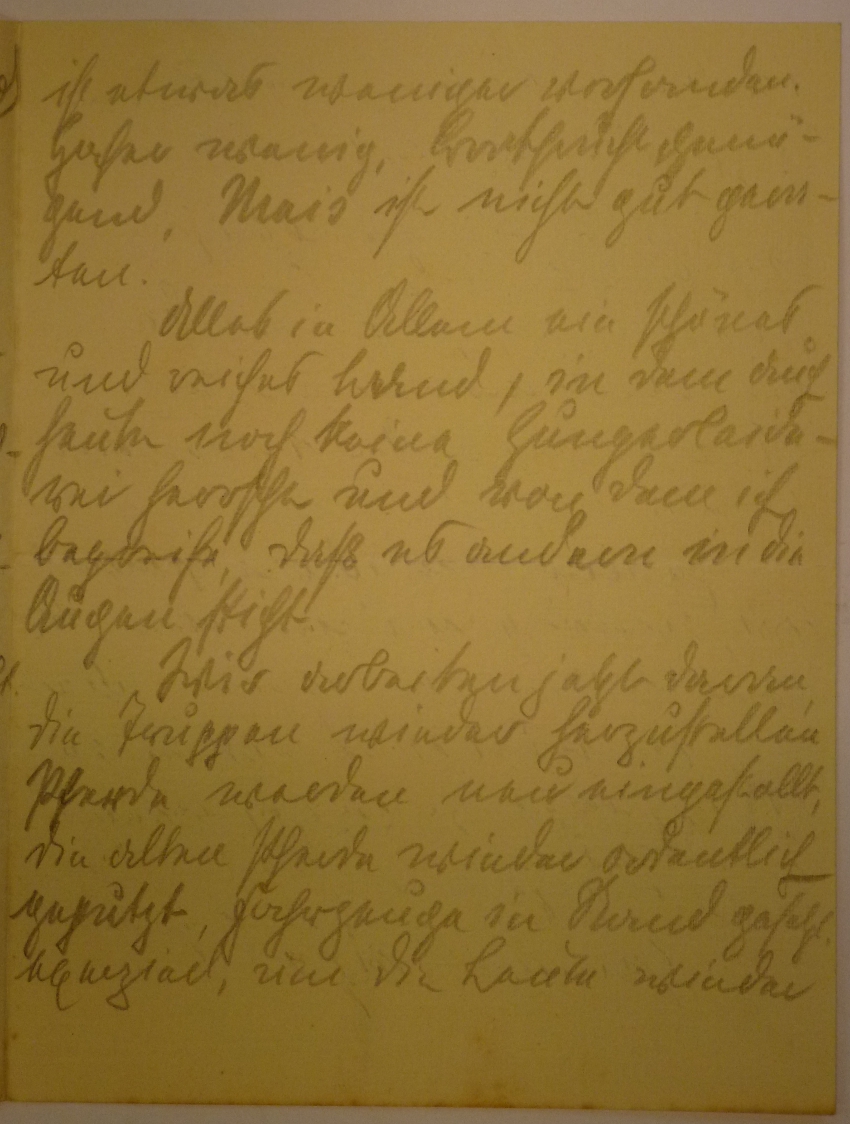 ist etwas weniger vorhanden.
Hafer wenig, Brotfrucht genü-
gend, Mais ist nicht gut gera-
ten.
Alles in Allem ein schönes
und reiches Land, in dem auch
heute noch keine Hungerleide-
rei herrscht und von dem ich
begreife, daß es andern in die
Augen sticht.
Wir arbeiten jetzt daran,
die Truppen wieder herzustellen
Pferde werden neu eingestellt,
die alten Pferde wieder ordentlich
geputzt, Fahrzeuge in Stand gesetzt.
exerziert, um die Leute wieder